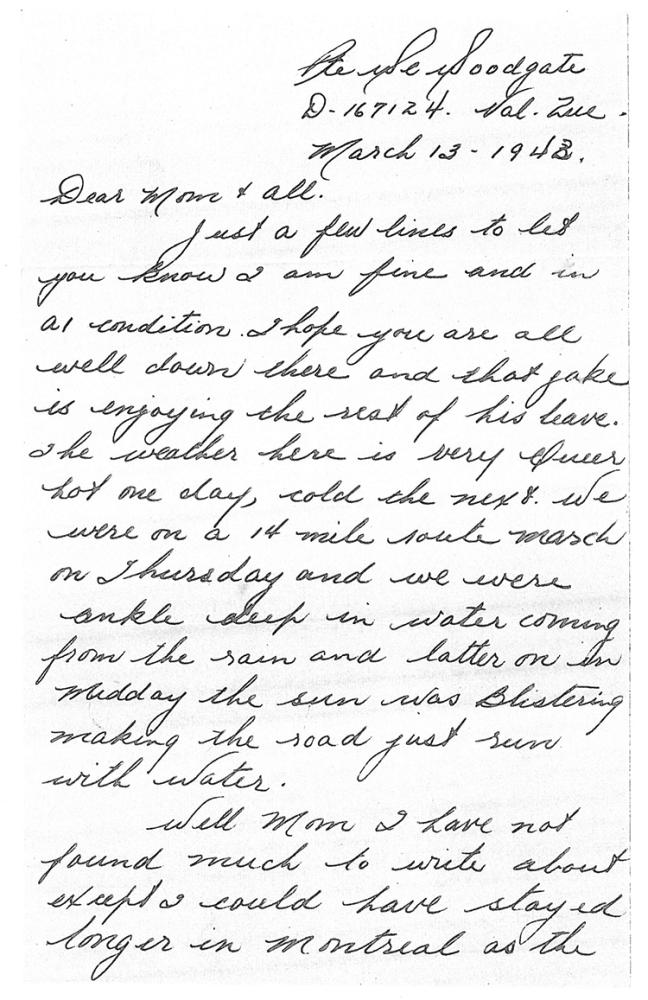 Pte Woodgate
D-167124. Val. Que.
March 13-1943.
Dear Mom & all.
Just a few lines to let
you know I am fine and in
a1 condition. I hope you are all
well down there and that jake
is enjoying the rest of his leave.
The weather here is very Queer
hot one day, cold the next. We
were on a 14 mile route march
on Thursday and we were
ankle deep in water coming
from the rain and latter on in
midday the sun was Blistering
making the road just run
with water.
Well Mom I have not
found much to write about
except I could have stayed
longer in Montreal as the